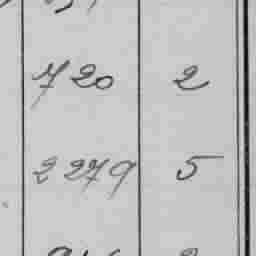 720 2
2279 5